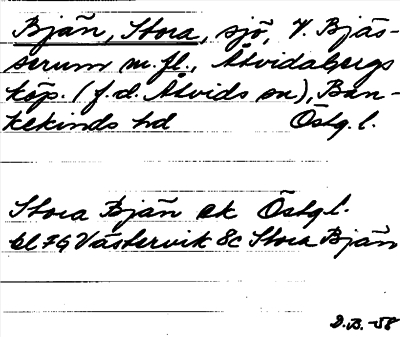 Bjän, Stora, sjö, V. Bjäs-
serum m.fl., Åtvidabergs
köp. (f.d. Åtvids sn), Ban-
kekinds hd Östg. l.
Stora Bjän ek Östgl.
bl 7G Västervik 8c Stora Bjän
D.B. -58